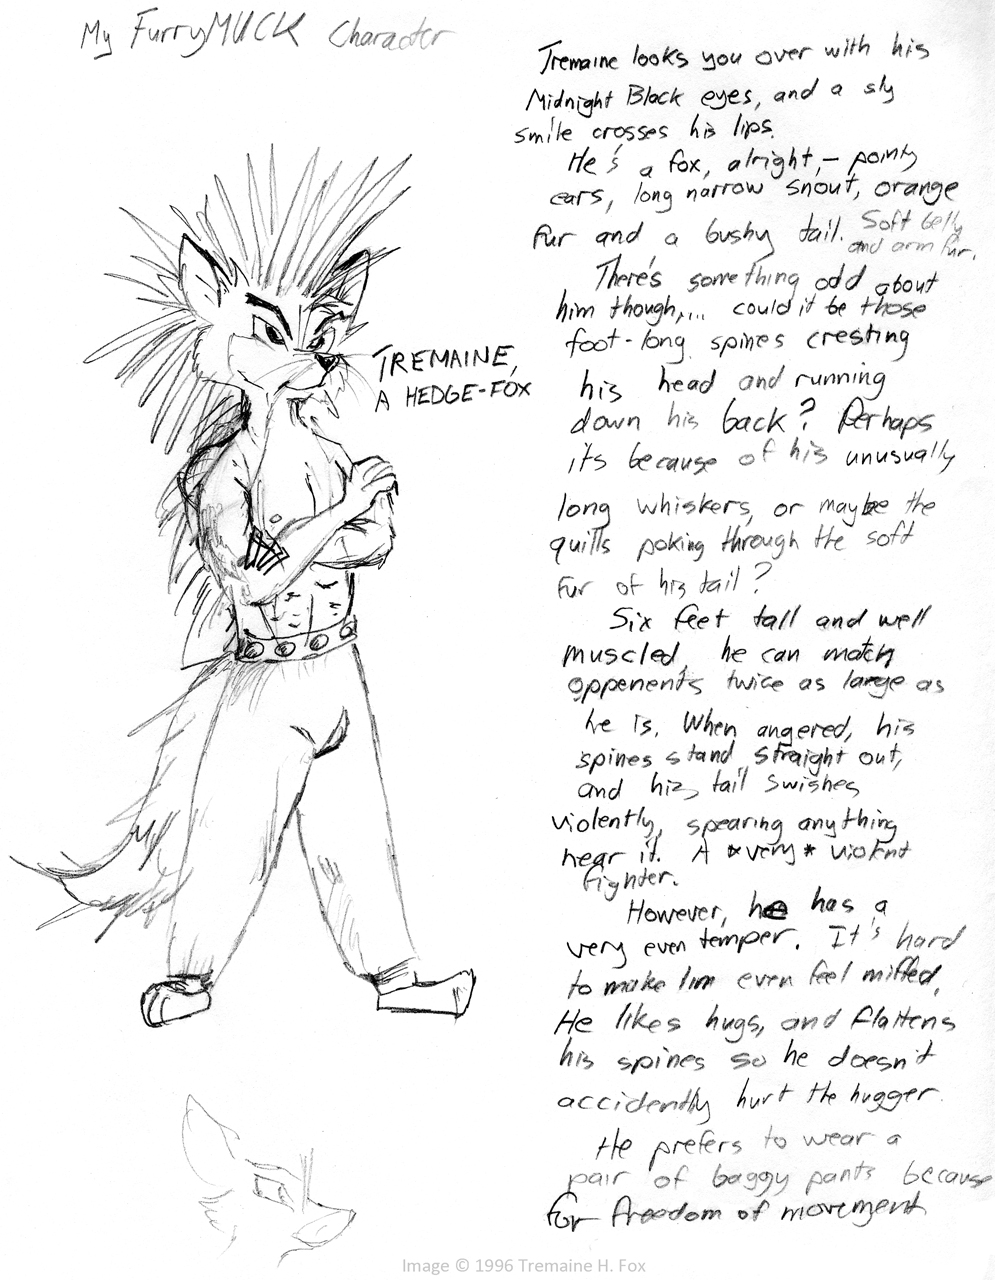 My FurryMUCK Character
TREMAINE,
A HEDGE-FOX
Tremaine looks you over with his
Midnight Black eyes, and a sly
smile crosses his lips.
He's a fox, alright,- pointy
ears, long narrow snout, orange
fur and a bushy tail. Soft belly
and arm fur.
There's something odd about
him though,... could it be those
foot-long spines cresting
his head and running
down his back? Perhaps
it's because of his unusually
long whiskers, or maybe the
quills poking through the soft
fur of his tail?
Six feet tall and well
muscled, he can match
oppenents twice as large as
he is. When angered, his
spines stand straight out,
and his tail swishes
violently, spearing anything
near it. A *very* violent
fighter.
However, he has a
very even temper. It's hard
to make him even feel miffed,
He likes hugs, and flattens
his spines so he doesn't
accidently hurt the hugger.
He prefers to wear a
pair of baggy pants because
for freedom of movement
Image © 1996 Tremaine H. Fox